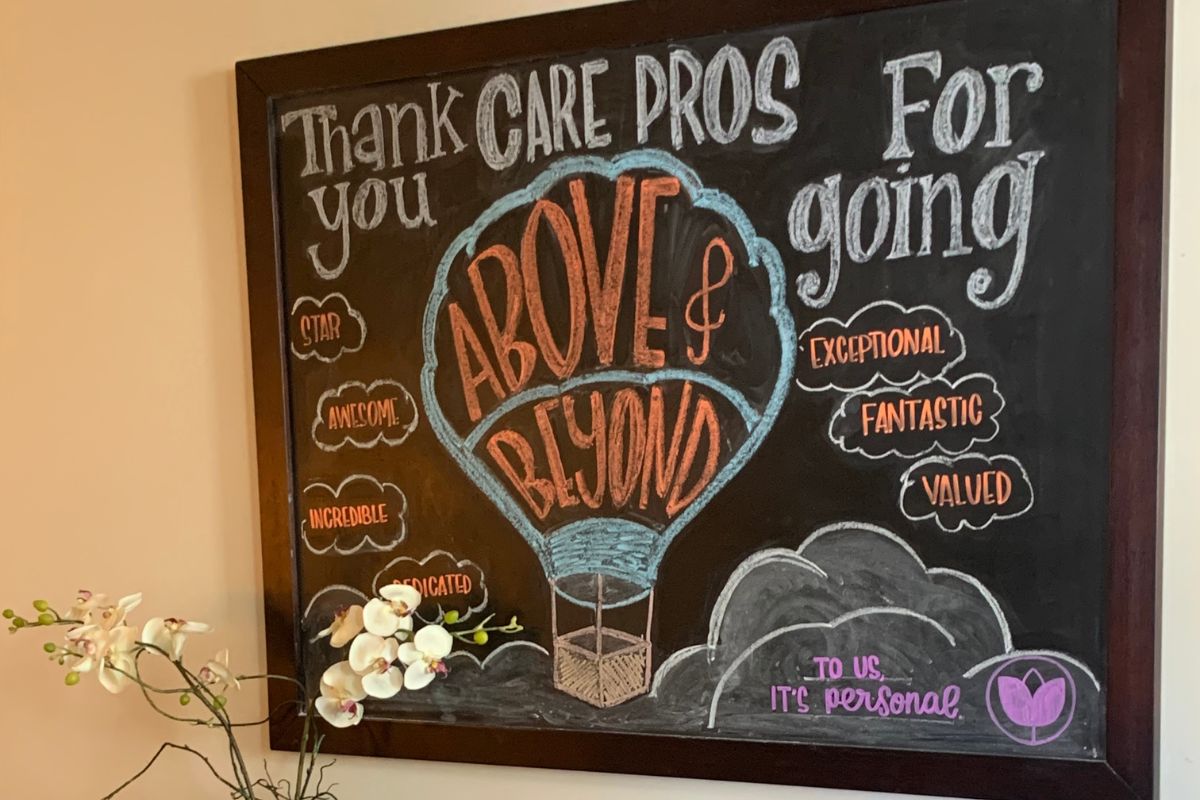 Thank CARE PROS For
you going
ABOVE &
BEYOND
STAR
AWESOME
INCREDIBLE
DEDICATED
EXCEPTIONAL
FANTASTIC
VALUED
TO US,
IT'S personal.